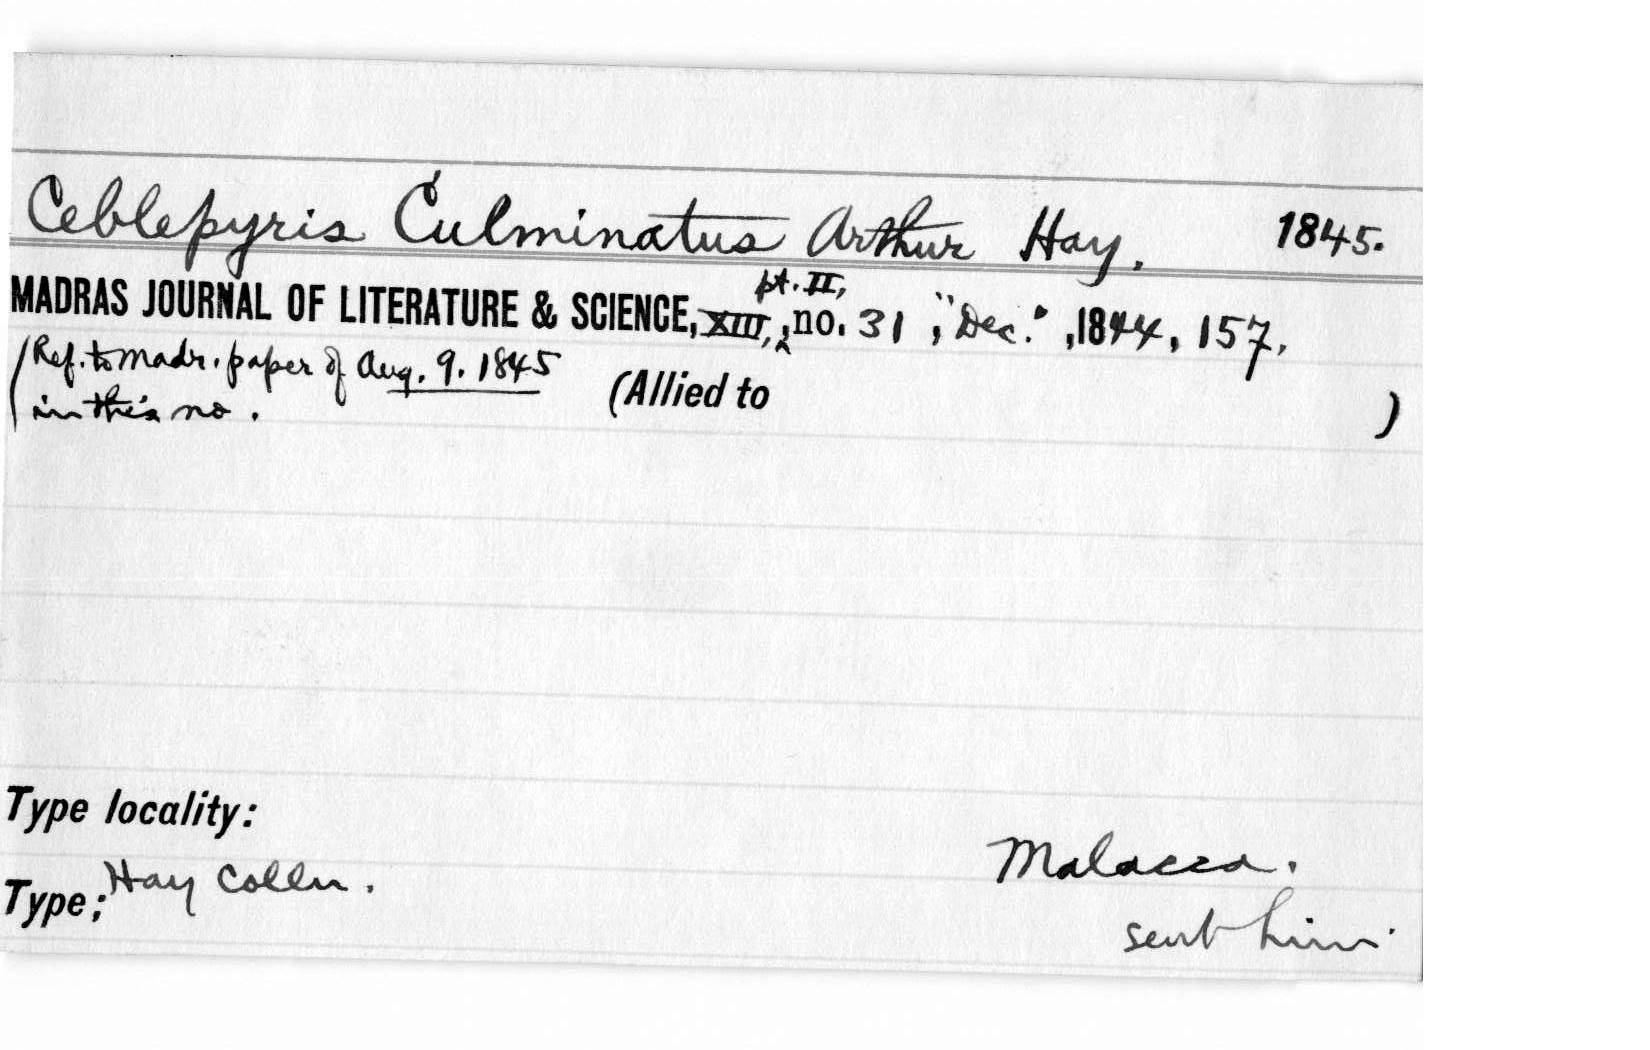 Ceblepyris Culminatus Arthur Hay. 1845.
MADRAS JOURNAL OF LITERATURE & SCIENCE, XIII, pt. II, no. 31, "Dec." ,1844, 157,
(Ref. to Madr. paper of Aug. 9. 1845
in this no.
(Allied to )
Type locality:
Malacca.
Type; Hay Colln.
sent him.